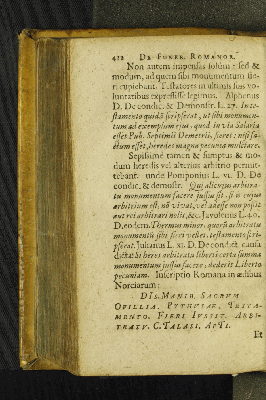 422 DE FUNER. ROMANOR.
Non autem impensas solùm: sed &
modum, ad quem sibi monumentum fie-
ri cupiebant. Testatores in ultimis suis vo-
luntatibus expressisse legimus. Alphenus
D. De condic. & Demonstr. L. 27. In te-
stamento quidã scripserat, ut sibi monumen-
tum ad exemplum ejus, quod in via Salaria
esset Pub. Septimii Demetrii, fieret: nisi fa-
ctum esset, heredes magna pecunia multare.
Sepissimè tamen & sumptus & mo-
dum heredis vel alterius arbitrio permit-
tebant. unde Pomponius L. VI. D. De
condic. & demostr. Qui alicujus arbitra-
tu monumentum facere jussus sit, si is cujus
arbitrium est, nõ vivat, vel adesse non possit
aut rei arbitrari nolit, &c. Javolenus L. 40.
D. eodem. Thermus minor, quorũ arbitratu
monumentũ sibi fieri vellet, testamento scri-
pserat. Julianus L. XI. D. De condict. causa
data: Si heres arbitratu liberti certa summa
monumentum jussus facere, dederit Liberto
pecuniam. Inscriptio Romana in ædibus
Norciarum:
DIS. MANIB. SACRUM
OFILLIÆ. PYTHUSÆ. TESTA-
MENTO. FIERI IUSSIT. ARBI-
TRATU. C. TALASI. APTI.
Et